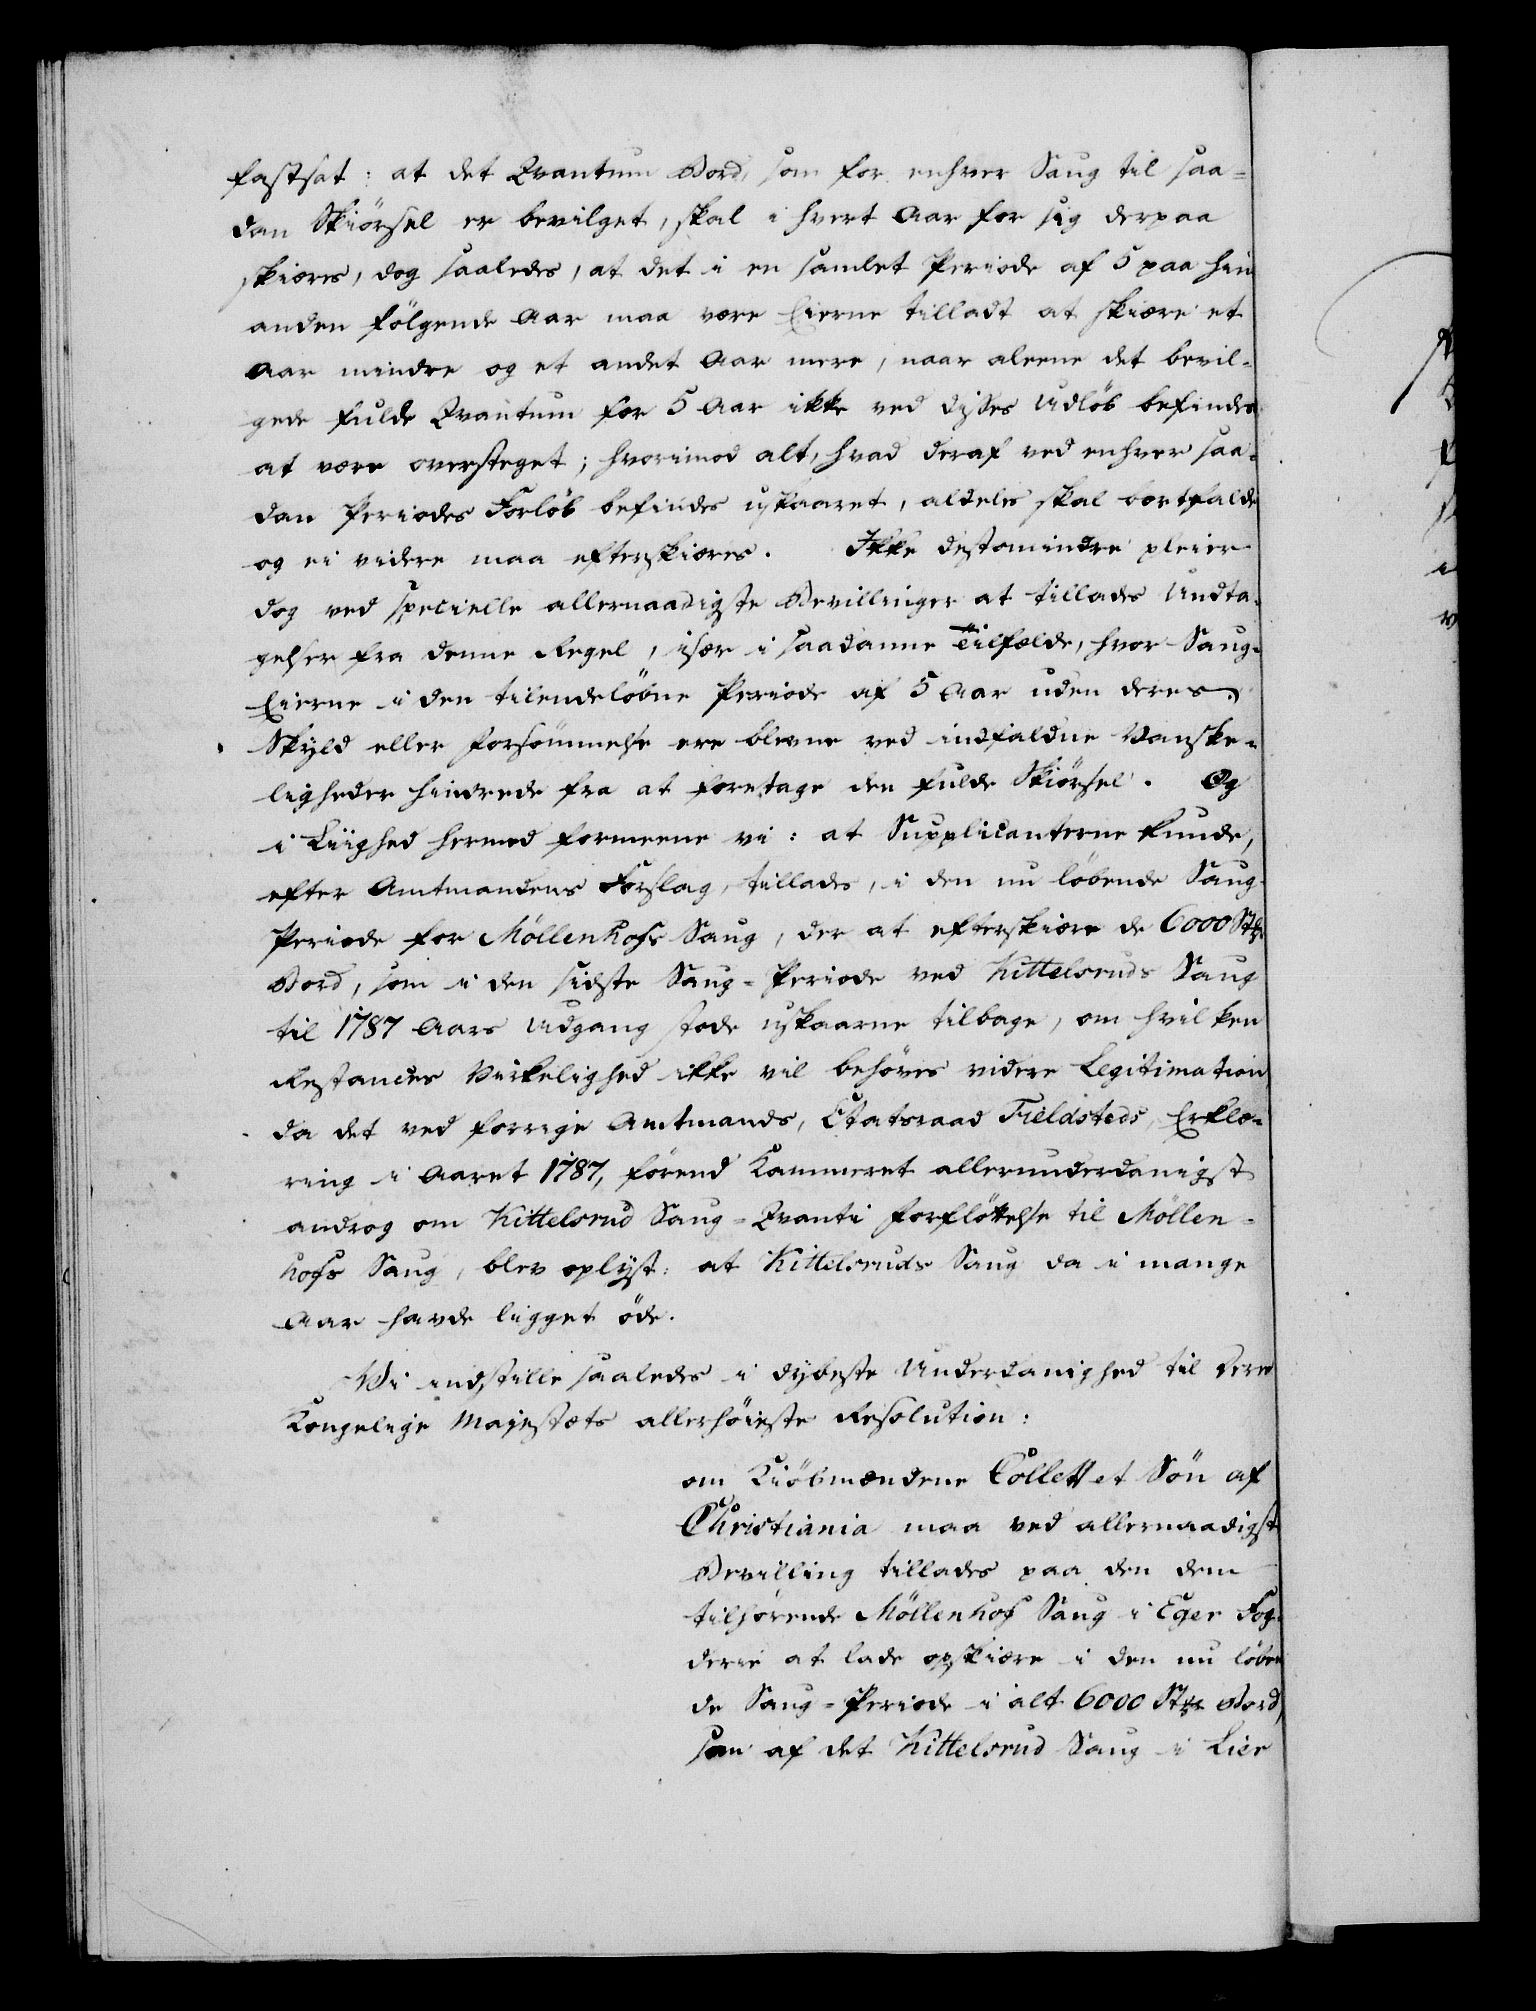 fastsat: at det Qvantum Bord, som for enhver Saug til saa-
dan Skiørsel er bevilget, skal i hvert Aar for sig derpaa
skiæres, dog saaledes, at det i en samlet Periode af 5 paa hin
anden følgende Aar maa være Eierne tilladt at skiære et
Aar mindre og et andet Aar mere, naar aleene det bevil-
gede fulde Qvantum for 5 Aar ikke ved disses Udløb befindes
at være oversteget; hvorimod alt, hvad deraf ved enhver saa-
dan Periodes Forløb befindes uskaaret, aldeles skal bortfalde
og ei videre maa efterskiæres. Ikke destomindre pleier
dog ved specielle allernaadigste Bevillinger at tillades Undta-
gelser fra denne Regel, især i saadanne Tilfælde, hvor Saug-
Eierne i den tilendeløbne Periode af 5 Aar uden deres
Skyld eller Forsømmelse ere blevne ved indfaldne Vanske-
ligheder hindrede fra at foretage den fulde Skiørsel. Og
i Liighed hermed formeene vi: at Supplicanterne kunde,
efter Amtmandens Forslag, tillades, i den nu løbende Saug-
Periode for Möllenhofs Saug, der at efterskiære de 6000 Stkr
Bord, som i den sidste Saug-Periode ved Kittelsruds Saug
til 1787 Aars Udgang stode uskaarne tilbage, om hvilken
Restances Virkelighed ikke vil behøves videre Legitimation
da det ved forrige Amtmands, Etatsraad Fieldsteds, Erklæ-
ring i Aaret 1787, førend Kammeret allerunderdanigst
androg om Kittelsrud Saug-Qvanti Forflöttelse til Möllen-
hofs Saug, blev oplyst: at Kittelsruds Saug da i mange
Aar havde ligget øde.
Vi indstille saaledes i dybeste Underdanighed til Deres
Kongelige Majestæts allerhöieste Resolution:
om Kiöbmændene Collett et Sön af
Christiania maa ved allernaadigst
Bevilling tillades paa den dem
tilhørende Möllenhof Saug i Eger Fog-
derie at lade opskiære i den nu løben
de Saug-Periode i alt 6000 Stkr Bord,
som af det Kittelsrud Saug i Lier